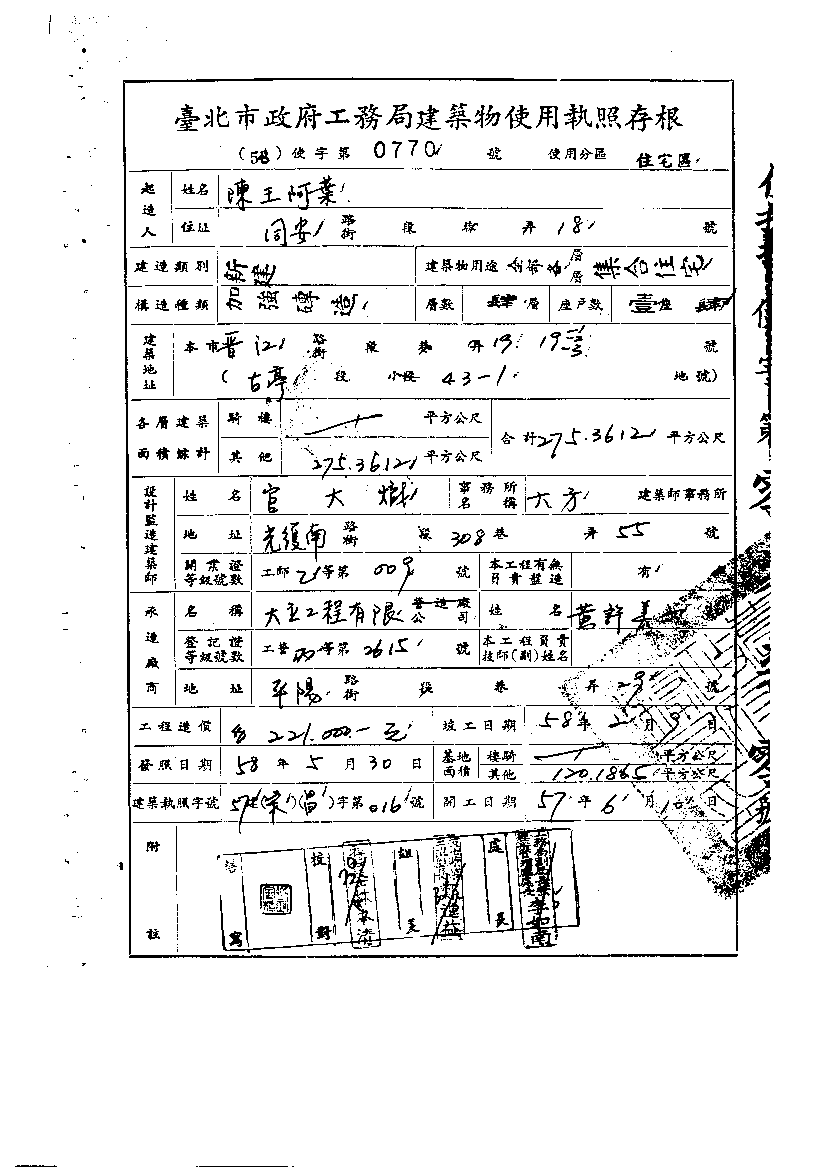 臺北市政府工務局建築物使用執照存根
(58)使字第 0770 號 使用分區 住宅區
起造人 姓名 陳王阿葉
住址 同安 路街 段 巷 弄 18 號
建造類別 新建 建築物用途 全部各層 集合住宅
構造種類 加強磚造 層數 肆層 座戶數 壹座 肆
建築地址 本市晉江 路街 段 巷 弄 19
號
(古亭 段 小段 43-1 地號)
各層建築面積詳計 騎樓 平方公尺 合計 275.3612 平方公尺
其他 275.3612 平方公尺
設計監造建築師 姓名 官大 事務所名稱 大方 建築師事務所
地址 光復南 路街 段 308 巷 弄 55 號
開業證等級號數 工師 等第 009 號 本工程有無負責監造 有
承造廠商 名稱 大立工程有限公司 營造廠 姓名 黃許美
登記證等級號數 工登 丙等第 2615 號 本工程負責技師(副)姓名
地址 平陽 路街 段 巷 弄 29 號
工程造價 221.000.-元 竣工日期 58年2月9日
發照日期 58年5月30日 基地面積 樓騎 平方公尺
其他 120.1865 平方公尺
建築執照字號 57 字第016號 開工日期 57年6月10日
附註
繕寫 校對 組長 處長 李如南